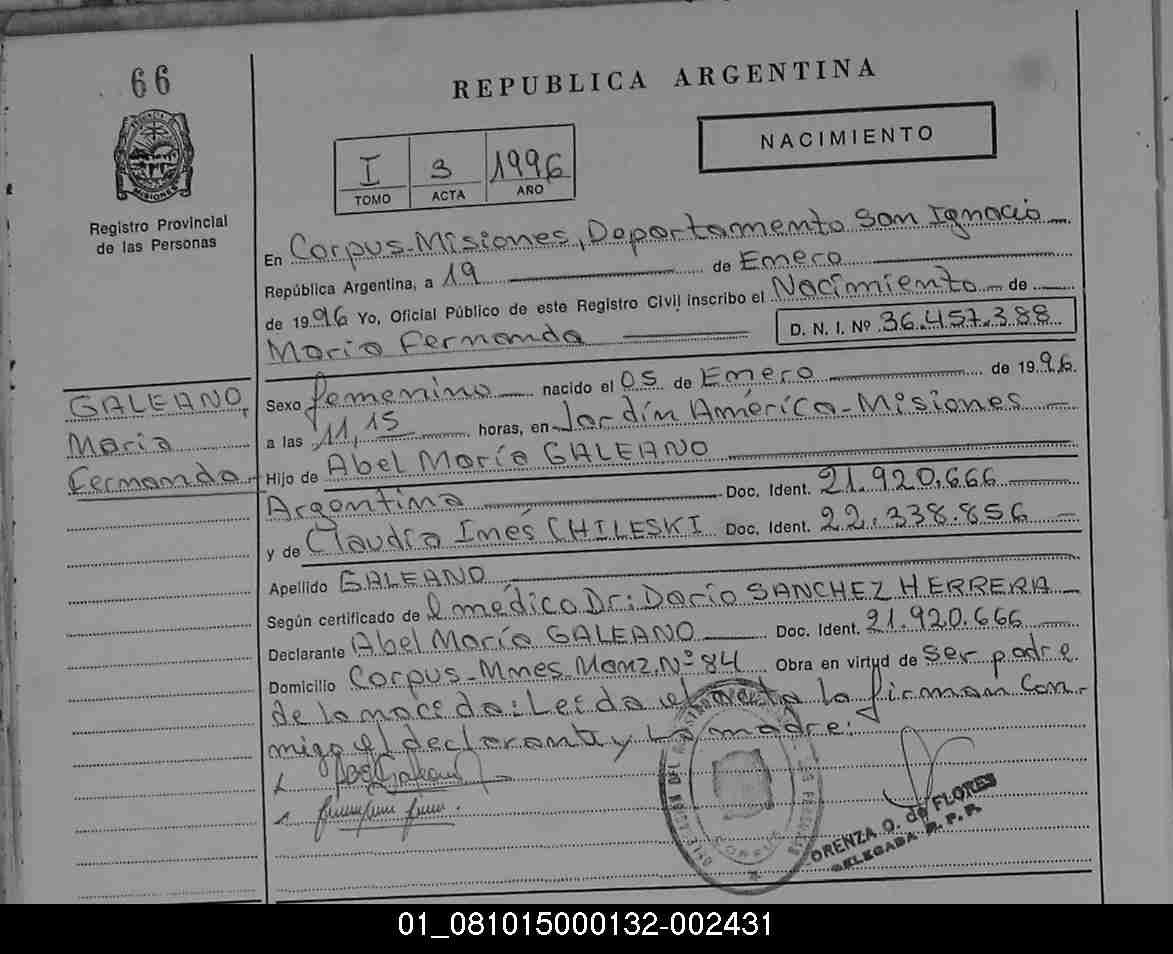 66
REPUBLICA ARGENTINA
NACIMIENTO
I 3 1996
TOMO ACTA AÑO
Registro Provincial
de las Personas
MISIONES
En Corpus-Misiones, Departamento San Ignacio
República Argentina, a 19 de Enero
de 1996 Yo, Oficial Público de este Registro Civil inscribo el Nacimiento de
María Fernanda D. N. I. Nº 36.457.388
GALEANO,
María
Fernanda
Sexo femenino nacido el 05 de Enero de 1996.
a las 11,15 horas, en Jardín América-Misiones
Hijo de Abel María GALEANO
Argentina Doc. Ident. 21.920.666
y de Claudia Inés CHILESKI Doc. Ident. 22.338.856
Apellido GALEANO
Según certificado de el médico Dr: Darío SANCHEZ HERRERA
Declarante Abel María GALEANO Doc. Ident. 21.920.666
Domicilio Corpus-Mnes. Manz. Nº 84 Obra en virtud de ser padre
de la nacida: Leída el acta la firman con-
migo el declarante y la madre:
ORENZA O. de FLORES
DELEGADA R. P. P.
01_081015000132-002431